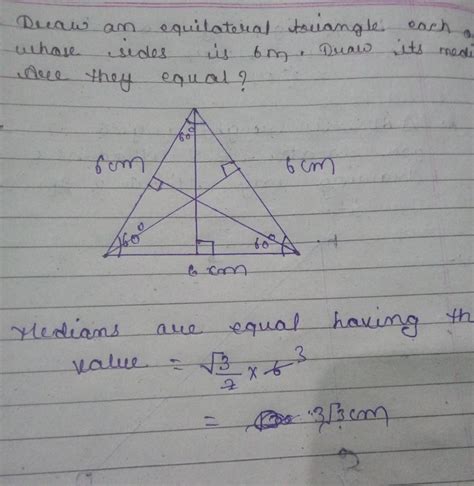 Draw an equilateral triangle each
whose sides is 6m. Draw its medi
Are they equal?
60°
6cm
6cm
60°
60°
6 cm
Medians are equal having th
value = √3/2 × 6 3
= 3√3cm